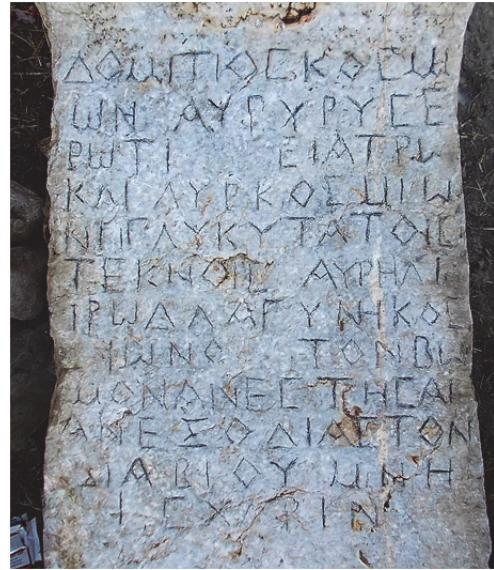 ΔΟΜΙΤΙΟСΚΟСΜΙ
ΩΝ ΑΥΡΧΡΥСΕ
ΡΩΤΙ ΕΙΑΤΡΩ
ΚΑΙ ΑΥΡΚΟСΜΙΩ
ΝΙΓΛΥΚΥΤΑΤΟΙС
ΤΕΚΝΟΙС ΑΥΡΗΛΙ
ΙΡΩΔΑΑΓΥΝΗΚΟС
ΙΩΝΟ ΤΟΝΒΩ
ΜΟΝΑΝΕСΤΗСΑΙ
ΑΝΕΞΟΔΙΑСΤΟΝ
ΔΙΑΒΙΟΥ ΜΝΗ